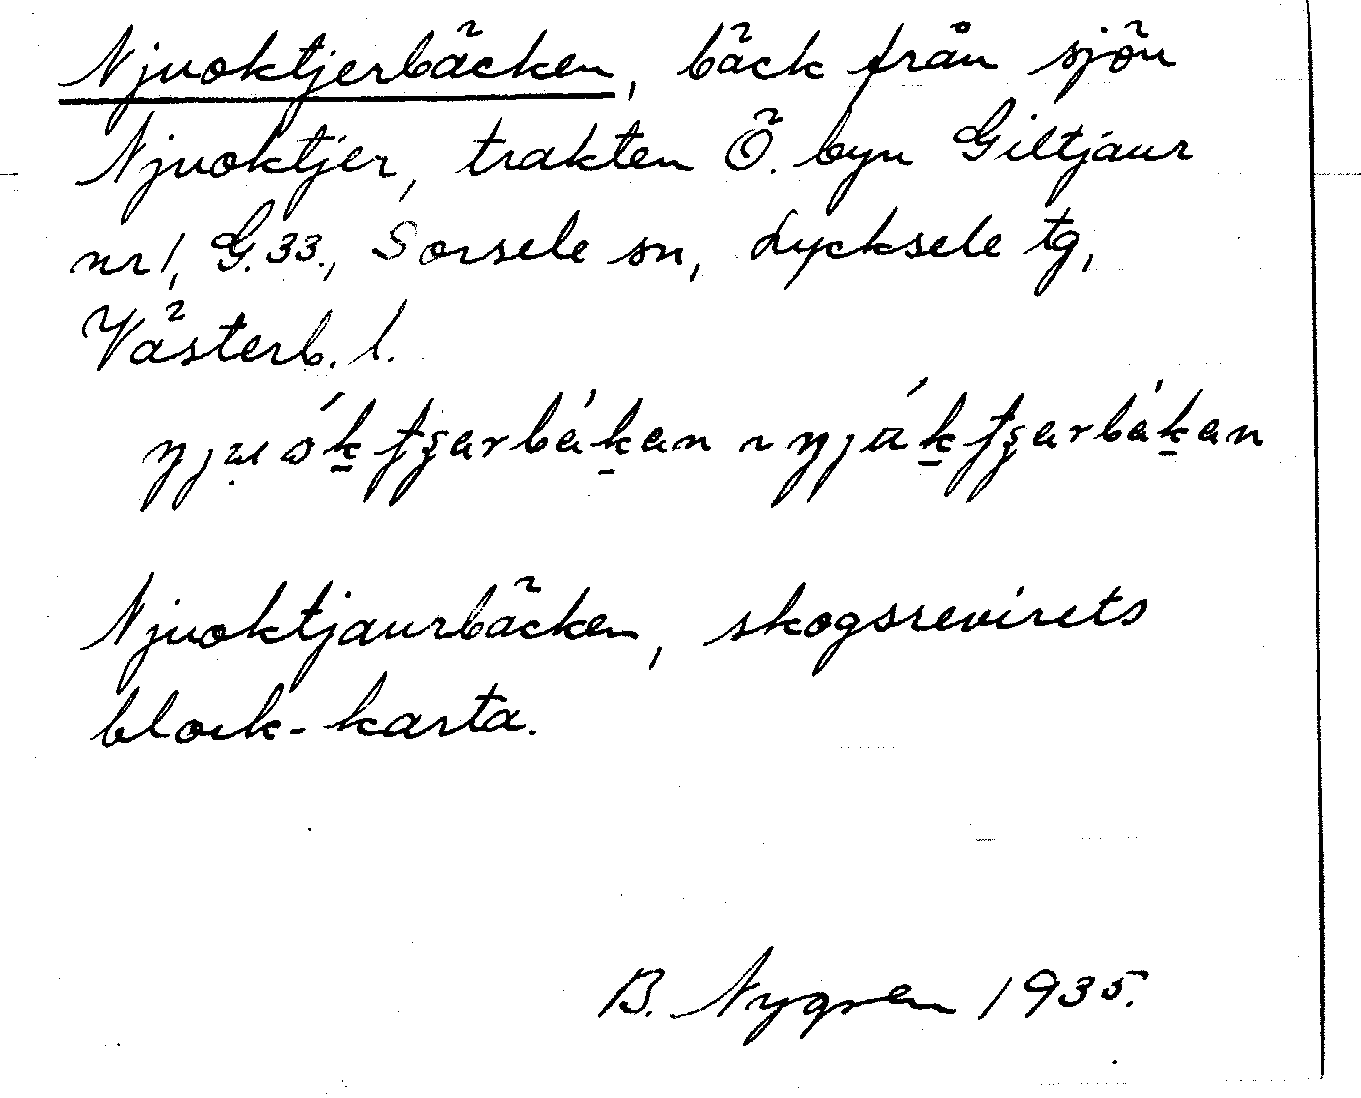 Njuoktjerbäcken, bäck från sjön
Njuoktjer, trakten Ö. byn Giltjaur
nr 1, G.33., Sorsele sn, Lycksele tg,
Västerb. l.
ŋju̯ók̲tʃarbák̲an ~ ŋjúk̲tʃarbák̲an
Njuoktjaurbäcken, skogsrevirets
block-karta.
B. Nygren 1935.